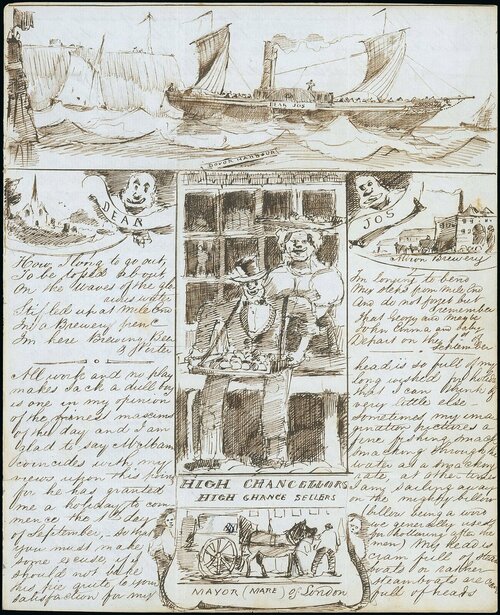 DEAR JOS
DOVOR HARBOUR
DEAR
JOS
Albion Brewery
How I long to go out,
To be tossed about
On the waves of the
water
Stifled up at Mile End
In a Brewery
I'm here Brewing Beer
& Porter
All work and no play
makes Jack a dull boy
is one in my opinion
of the primest maxims
of the day and I am
glad to say
coincides with my
views upon this point
for he has granted
me a holiday to com
mence the 1st day
of September, so that
you must make
some excuse, if I
should not
this fin quite to your
satisfaction for my
I'm longing to bend
My steps from Mile End
And do not forget but
remember
That Georgy and
John Emma and
Depart on the
September
head is so full of my
long wished for hol
that I can think of
very little else
sometimes my ima
gination pictures a
fine fishing smack
smacking through the
water at a smacking
rate, at other times
I am, sailing across
on the mighty billow
billow being a word
we generally used
for hollowing after the
men) My head is
cram full of steam
boats or rather
steamboats are
full of heads
HIGH CHANCELLORS
HIGH CHANCE SELLERS
MAYOR (MARE) of London